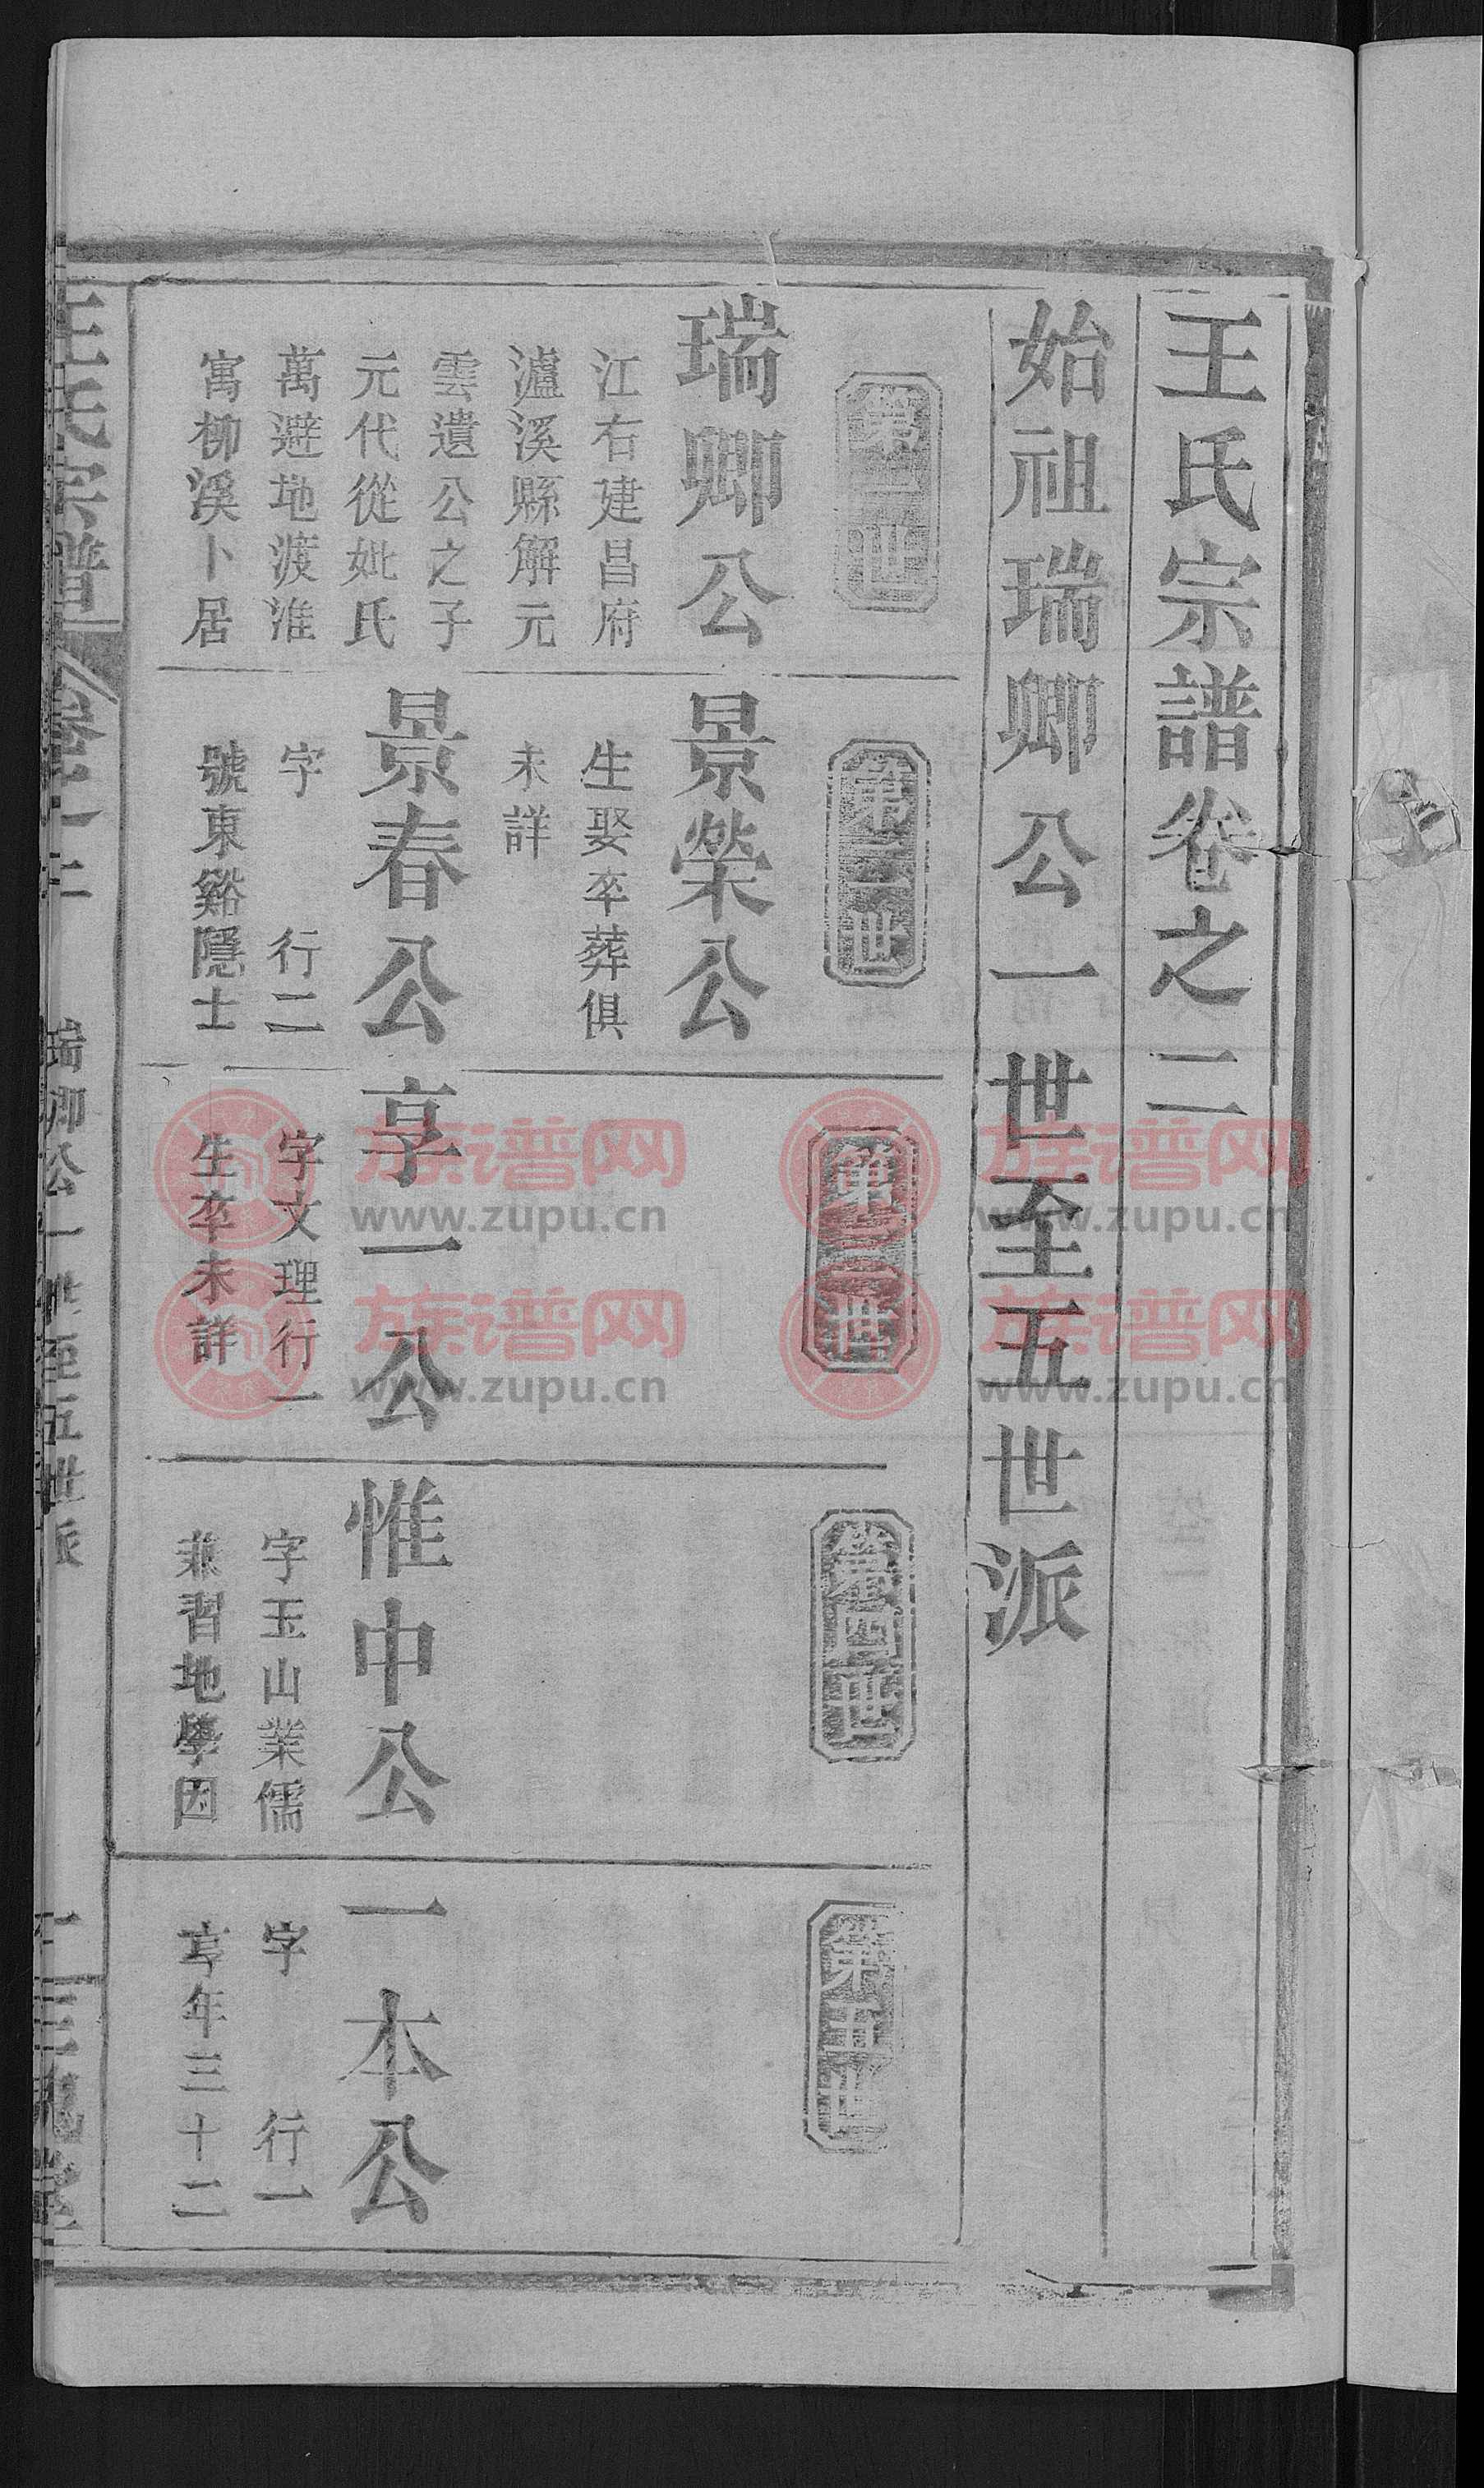 王氏宗譜卷之二
始祖瑞卿公一世至五世派
第一世
瑞卿公
江右建昌府
瀘溪縣解元
雲遺公之子
元代從妣氏
萬避地渡淮
寓柳溪卜居
第二世
景榮公
生娶卒葬俱
未詳
景春公
字 行二
號東谿隱士
第三世
享一公
字文理行一
生卒未詳
第四世
惟中公
字玉山業儒
兼習地學因
第五世
一本公
字 行一
享年三十二
王氏宗譜
瑞卿公一世至五世派
族谱网
www.zupu.cn
族谱网
www.zupu.cn
族谱网
www.zupu.cn
族谱网
www.zupu.cn